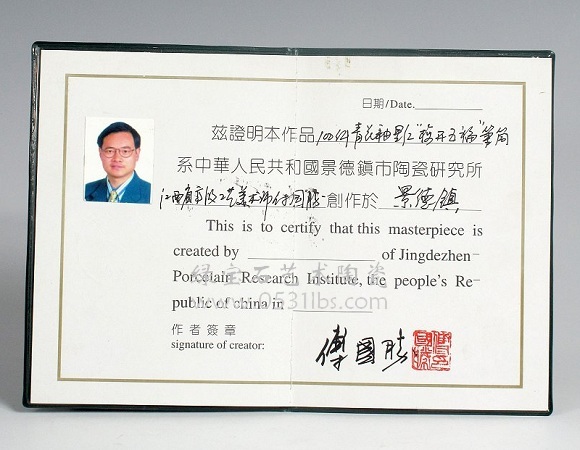 日期/Date.
茲證明本作品100件青花釉里紅"梅开五福"筆筒
系中華人民共和國景德鎮市陶瓷研究所
江西省高级工艺美术师付国胜創作於 景德鎮
This is to certify that this masterpiece is
created by of Jingdezhen
Porcelain Research Institute, the people's Re-
public of china in
绿宝石艺术陶瓷
www.0531lbs.com
作者簽章
signature of creator:
傅國勝